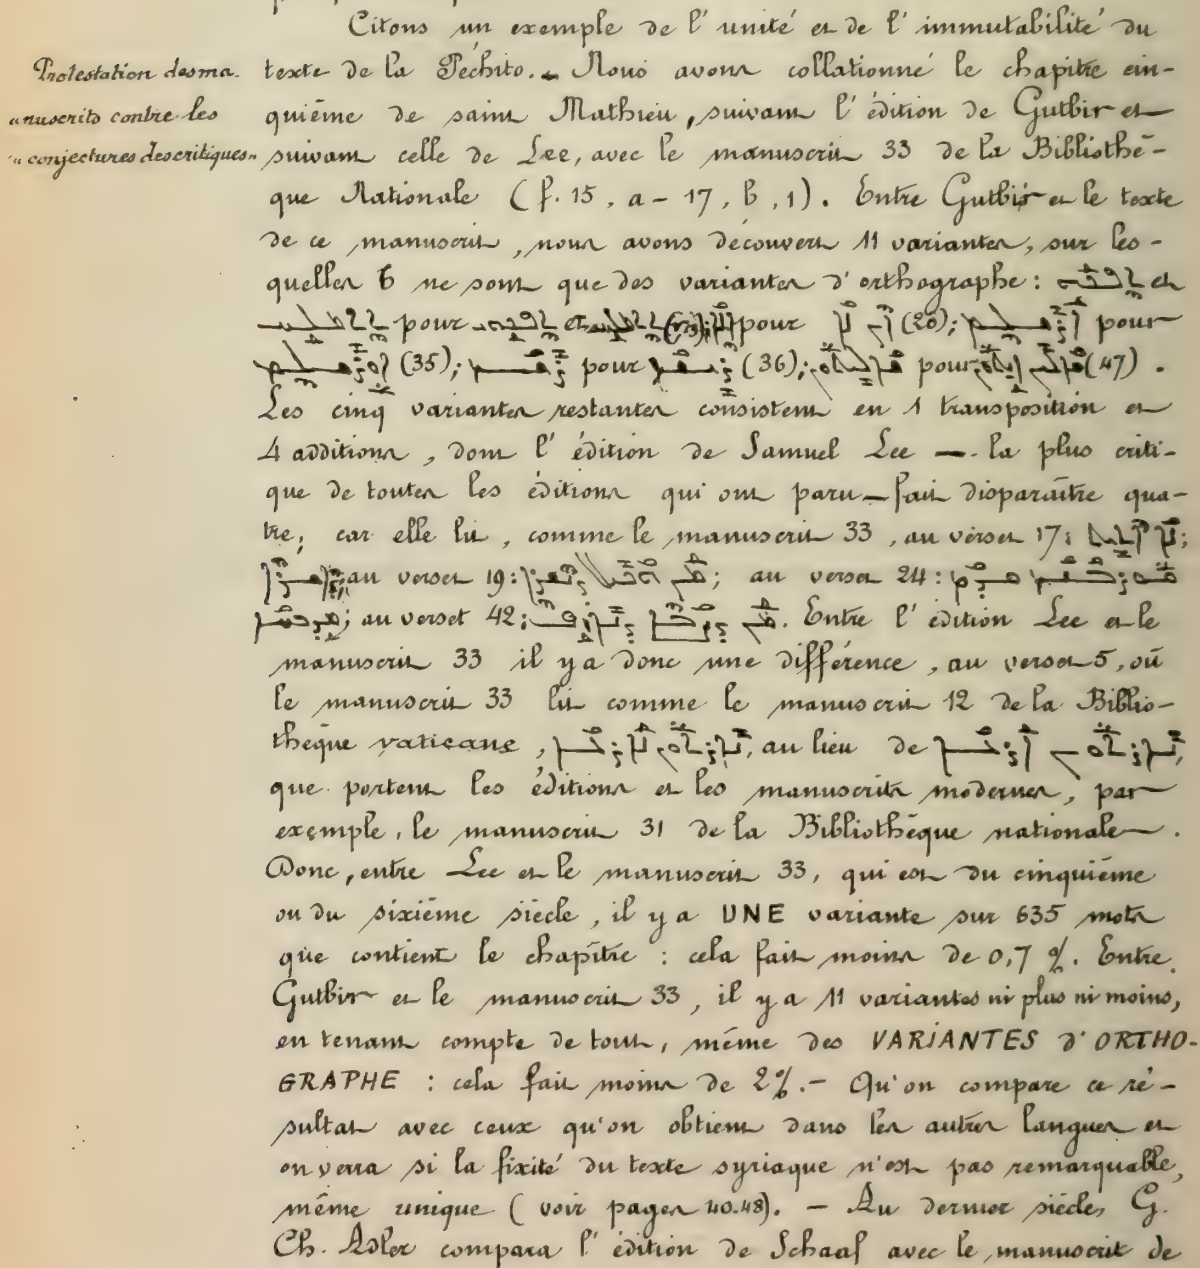 Citons un exemple de l'unité et de l'immutabilité du
Protestation des ma-
nuscrits contre les
conjectures des critiques.
texte de la Péchito. – Nous avons collationné le chapitre cin-
quième de saint Mathieu, suivant l'édition de Gutbir et
suivant celle de Lee, avec le manuscrit 33 de la Bibliothè-
que Nationale (f. 15, a - 17, b, 1). Entre Gutbir et le texte
de ce manuscrit, nous avons découvert 11 variantes, sur les-
quelles 6 ne sont que des variantes d'orthographe : et
pour et pour (20); pour
(35); pour (36); pour (47).
Les cinq variantes restantes consistent en 1 transposition et
4 additions, dont l'édition de Samuel Lee – la plus criti-
que de toutes les éditions qui ont paru – fait disparaître qua-
tre; car elle lit, comme le manuscrit 33, au verset 17:
au verset 19: au verset 24:
au verset 42: Entre l'édition Lee et le
manuscrit 33 il y a donc une différence, au verset 5, où
le manuscrit 33 lit comme le manuscrit 12 de la Biblio-
thèque vaticane, au lieu de
que portent les éditions et les manuscrits modernes, par
exemple, le manuscrit 31 de la Bibliothèque nationale.
Donc, entre Lee et le manuscrit 33, qui est du cinquième
ou du sixième siècle, il y a UNE variante sur 635 mots
que contient le chapitre : cela fait moins de 0,7 %. Entre
Gutbir et le manuscrit 33, il y a 11 variantes ni plus ni moins,
en tenant compte de tout, même des VARIANTES d'ORTHO-
GRAPHE : cela fait moins de 2%. – Qu'on compare ce ré-
sultat avec ceux qu'on obtient dans les autres langues et
on verra si la fixité du texte syriaque n'est pas remarquable,
même unique (voir pages 40.48). – Au dernier siècle, G.
Ch. Adler compara l'édition de Schaaf avec le manuscrit de